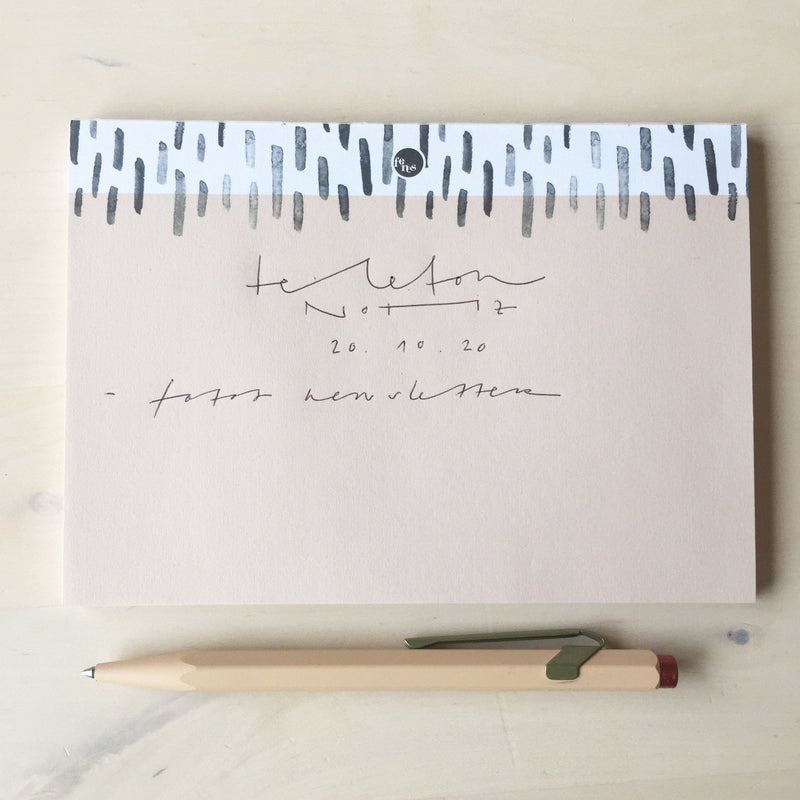 fenss
telefon
Notiz
20. 10. 20
- fotos newsletter